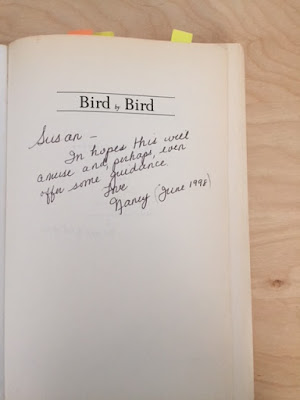 Bird by Bird
Susan –
In hopes this will
amuse and, perhaps, even
offer some guidance.
Love
Nancy (June 1998)